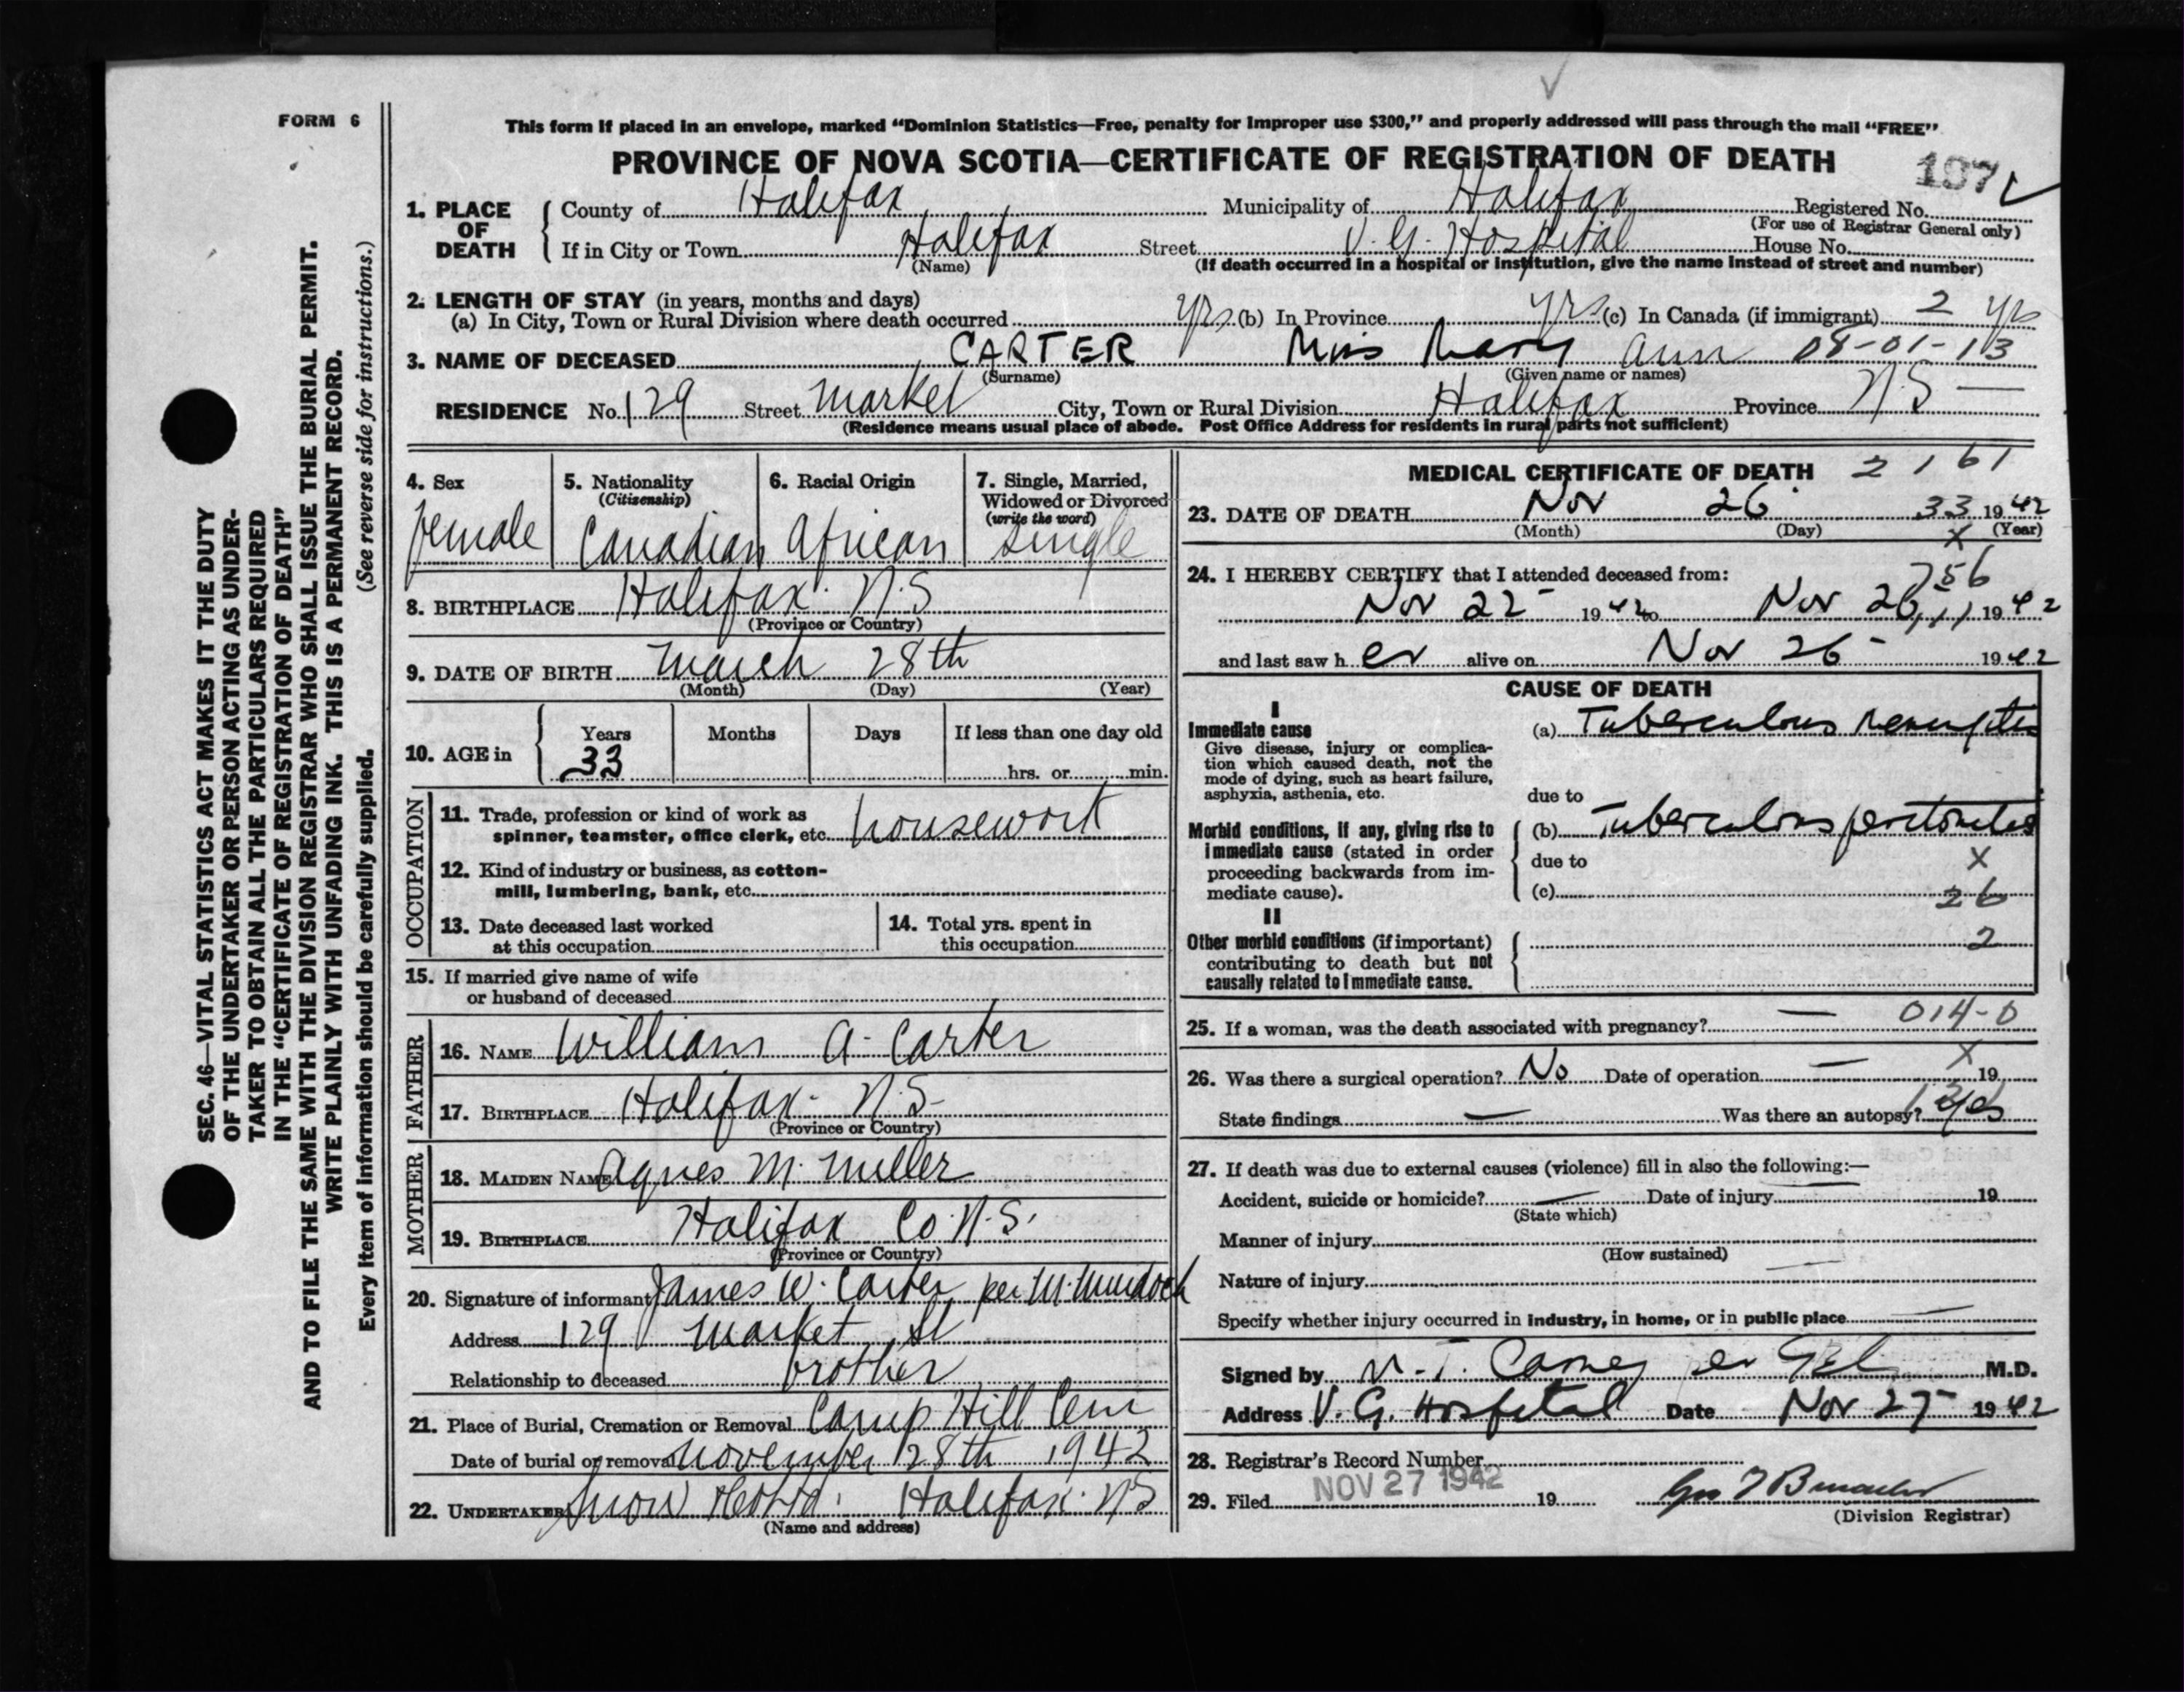 FORM 6
This form if placed in an envelope, marked “Dominion Statistics—Free, penalty for improper use $300,” and properly addressed will pass through the mail “FREE”
PROVINCE OF NOVA SCOTIA—CERTIFICATE OF REGISTRATION OF DEATH
1. PLACE OF DEATH
County of Halifax Municipality of Halifax Registered No.
(For use of Registrar General only)
If in City or Town Halifax Street V. G. Hospital House No.
(Name) (If death occurred in a hospital or institution, give the name instead of street and number)
2. LENGTH OF STAY (in years, months and days)
(a) In City, Town or Rural Division where death occurred yrs. (b) In Province yrs (c) In Canada (if immigrant) 2 yrs
3. NAME OF DECEASED CARTER Miss Mary Ann 08-01-13
(Surname) (Given name or names)
RESIDENCE No. 129 Street Market City, Town or Rural Division Halifax Province N.S —
(Residence means usual place of abode. Post Office Address for residents in rural parts not sufficient)
4. Sex
female
5. Nationality
(Citizenship)
Canadian
6. Racial Origin
African
7. Single, Married, Widowed or Divorced
(write the word)
single
8. BIRTHPLACE Halifax N.S
(Province or Country)
9. DATE OF BIRTH March 28th
(Month) (Day) (Year)
10. AGE in Years Months Days If less than one day old
33 hrs. or min.
OCCUPATION
11. Trade, profession or kind of work as
spinner, teamster, office clerk, etc. housework
12. Kind of industry or business, as cotton-
mill, lumbering, bank, etc.
13. Date deceased last worked
at this occupation
14. Total yrs. spent in
this occupation
15. If married give name of wife
or husband of deceased
FATHER
16. NAME William A. Carter
17. BIRTHPLACE Halifax N.S-
(Province or Country)
MOTHER
18. MAIDEN NAME Agnes M. Miller
19. BIRTHPLACE Halifax Co. N.S.
(Province or Country)
20. Signature of informant James W. Carter per M. Murdoch
Address 129 Market St
Relationship to deceased brother
21. Place of Burial, Cremation or Removal Camp Hill Cem
Date of burial or removal November 28th 1942
22. UNDERTAKER Snow Halifax N.S
(Name and address)
MEDICAL CERTIFICATE OF DEATH 2161
23. DATE OF DEATH Nov 26 33 1942
(Month) (Day) (Year)
x
24. I HEREBY CERTIFY that I attended deceased from:
756
Nov 22 1942 to Nov 26 1942
and last saw h er alive on Nov 26 1942
CAUSE OF DEATH
I
Immediate cause
Give disease, injury or complica-
tion which caused death, not the
mode of dying, such as heart failure,
asphyxia, asthenia, etc.
(a) Tuberculous meningitis
due to
Morbid conditions, if any, giving rise to
immediate cause (stated in order
proceeding backwards from im-
mediate cause).
(b) Tuberculous peritonitis
due to x
(c) 26
II
Other morbid conditions (if important)
contributing to death but not
causally related to immediate cause.
2
25. If a woman, was the death associated with pregnancy? — 014-0
26. Was there a surgical operation? No Date of operation — x 19
State findings — Was there an autopsy? Yes
27. If death was due to external causes (violence) fill in also the following:—
Accident, suicide or homicide? — Date of injury 19
(State which)
Manner of injury
(How sustained)
Nature of injury
Specify whether injury occurred in industry, in home, or in public place
Signed by M.D.
Address V. G. Hospital Date Nov 27 1942
28. Registrar's Record Number
29. Filed NOV 27 1942 19
(Division Registrar)
SEC. 46—VITAL STATISTICS ACT MAKES IT THE DUTY
OF THE UNDERTAKER OR PERSON ACTING AS UNDER-
TAKER TO OBTAIN ALL THE PARTICULARS REQUIRED
IN THE “CERTIFICATE OF REGISTRATION OF DEATH”
AND TO FILE THE SAME WITH THE DIVISION REGISTRAR WHO SHALL ISSUE THE BURIAL PERMIT.
WRITE PLAINLY WITH UNFADING INK. THIS IS A PERMANENT RECORD.
Every item of information should be carefully supplied. (See reverse side for instructions.)